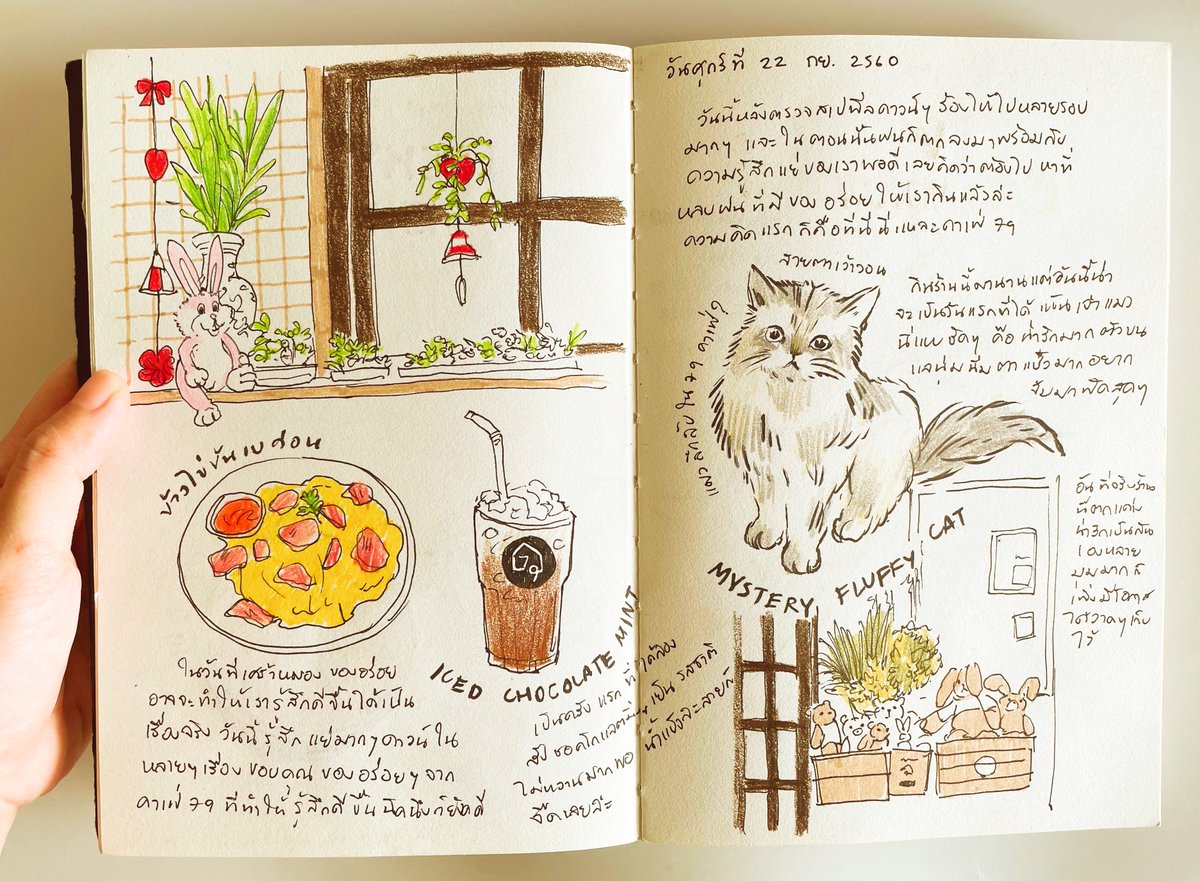 ข้าวไข่ข้นเบค่อน
ในวันที่เศร้าหมอง ของอร่อย
อาจจะทำให้เรารู้สึกดีขึ้นได้เป็น
เรื่องจริง วันนี้รู้สึกแย่มากๆดาวน์ใน
หลายๆเรื่อง ขอบคุณ ของอร่อยๆ จาก
คาเฟ่ 79 ที่ทำให้รู้สึกดีขึ้น นิดนึงก็ยังดี
ICED CHOCOLATE MINT
เป็นครั้งแรก ที่ได้ลอง
สั่งช็อคโกแลตมิ้น เป็น รสชาติ
ไม่หวานมาก พอน้ำแข็งละลายก็
จืดเลยล่ะ
วันศุกร์ที่ 22 กย. 2560
วันนี้หลังตรวจสเปฟีลดาวน์ๆ ร้องไห้ไปหลายรอบ
มากๆ และในตอนนั้นฝนก็ตกลงมาพร้อมกับ
ความรู้สึกแย่ของเราพอดี เลยคิดว่าต้องไป หาที่
หลบฝน ที่มีของอร่อยให้เรากินแล้วล่ะ
ความคิดแรก ก็คือที่นี่ นี่แหละคาเฟ่ 79
สายตาเว้าวอน
แมวลึกลับใน 79 คาเฟ่ๆ
กินร้านนี้มานานแต่อันนี้น่า
จะเป็นวันแรกที่ได้ เห็นเจ้าแมว
นี่แบบชัดๆ คือ น่ารักมาก ตัวบน
แลนุ่มนิ่ม ตาแป๋วมาก อยาก
จับมาฟัดสุดๆ
MYSTERY FLUFFY CAT
อันที่จริงร้าน
นี้ตกแต่ง
น่ารักเป็นสัน
เองหลาย
มุมมาก ก็
เพิ่งมีโอกาส
ได้วาดๆเก็บ
ไว้